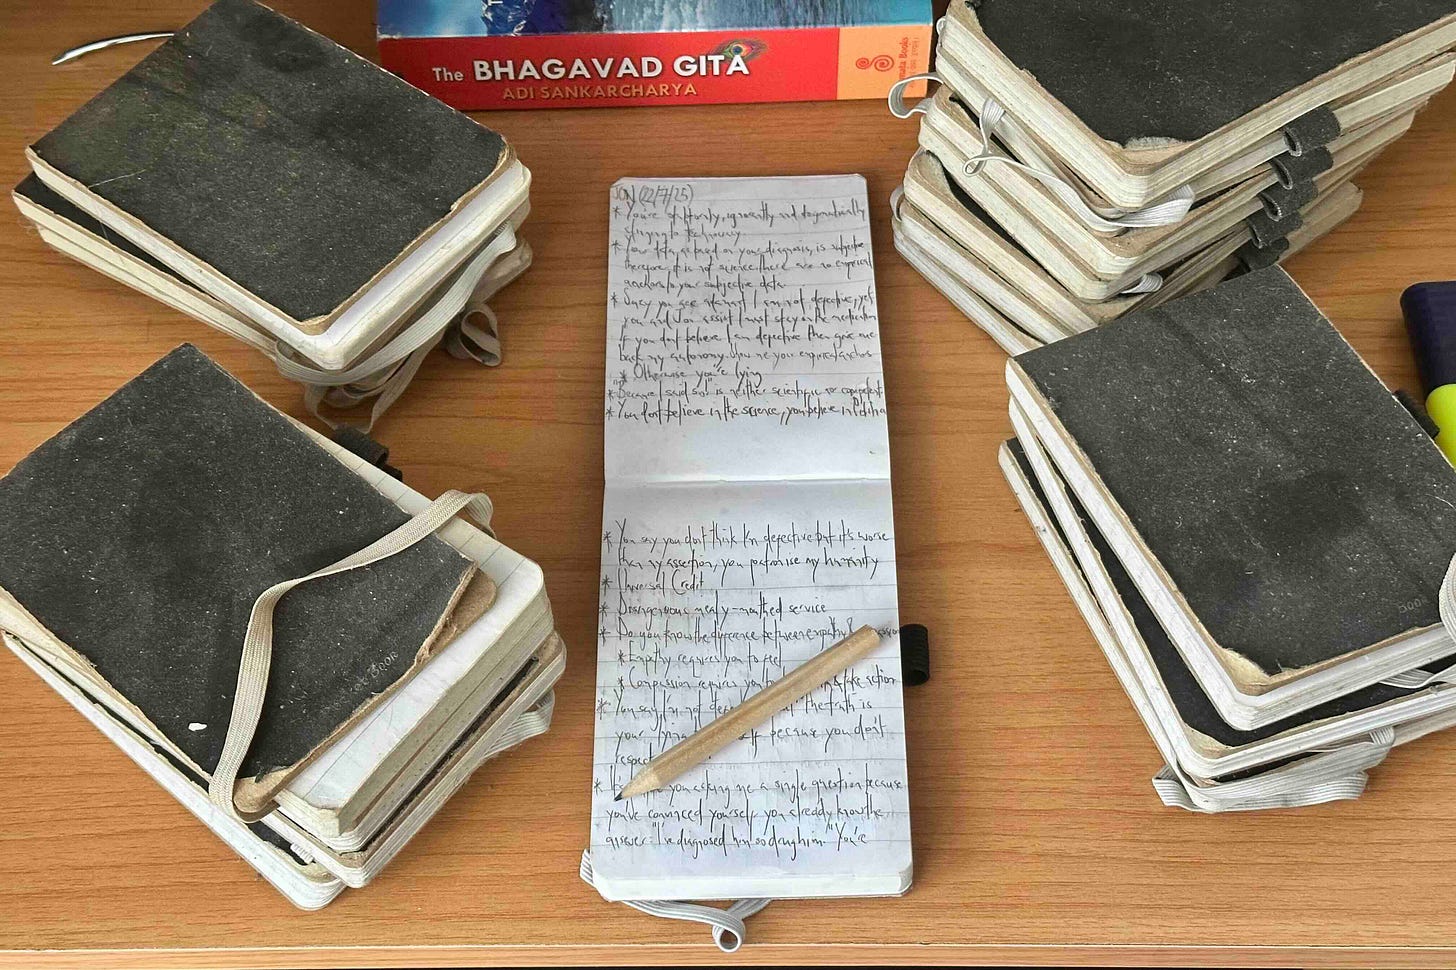 The BHAGAVAD GITA
ADI SANKARCHARYA
JON (22/7/25)
* You're stubbornly, ignorantly and dogmatically
clinging to
* Your data, as based on your diagnosis, is subjective
therefore it is not science. there are no empirical
anchors to your subjective data
* you see I am not defective, yet
you and Jon assist I must stay on the medication
If you don't believe I am defective then give me
back my autonomy. show me your empirical anchors
* Otherwise you're lying
* "Because I said so" is neither scientific nor competent
* You don't believe in the science, you believe in
* You say you don't think I'm defective but it's worse
than my assertion, you patronise my humanity
* Universal Credit
* Dangerous mealy-mouthed service
* Do you know the difference between empathy &
* Empathy requires you to feel
* Compassion requires you to & take action
* You say I'm not the truth is
your because you don't
respect
* you asking me a single question because
you've convinced yourself you already know the
answer: "I've diagnosed him so drug him." You're